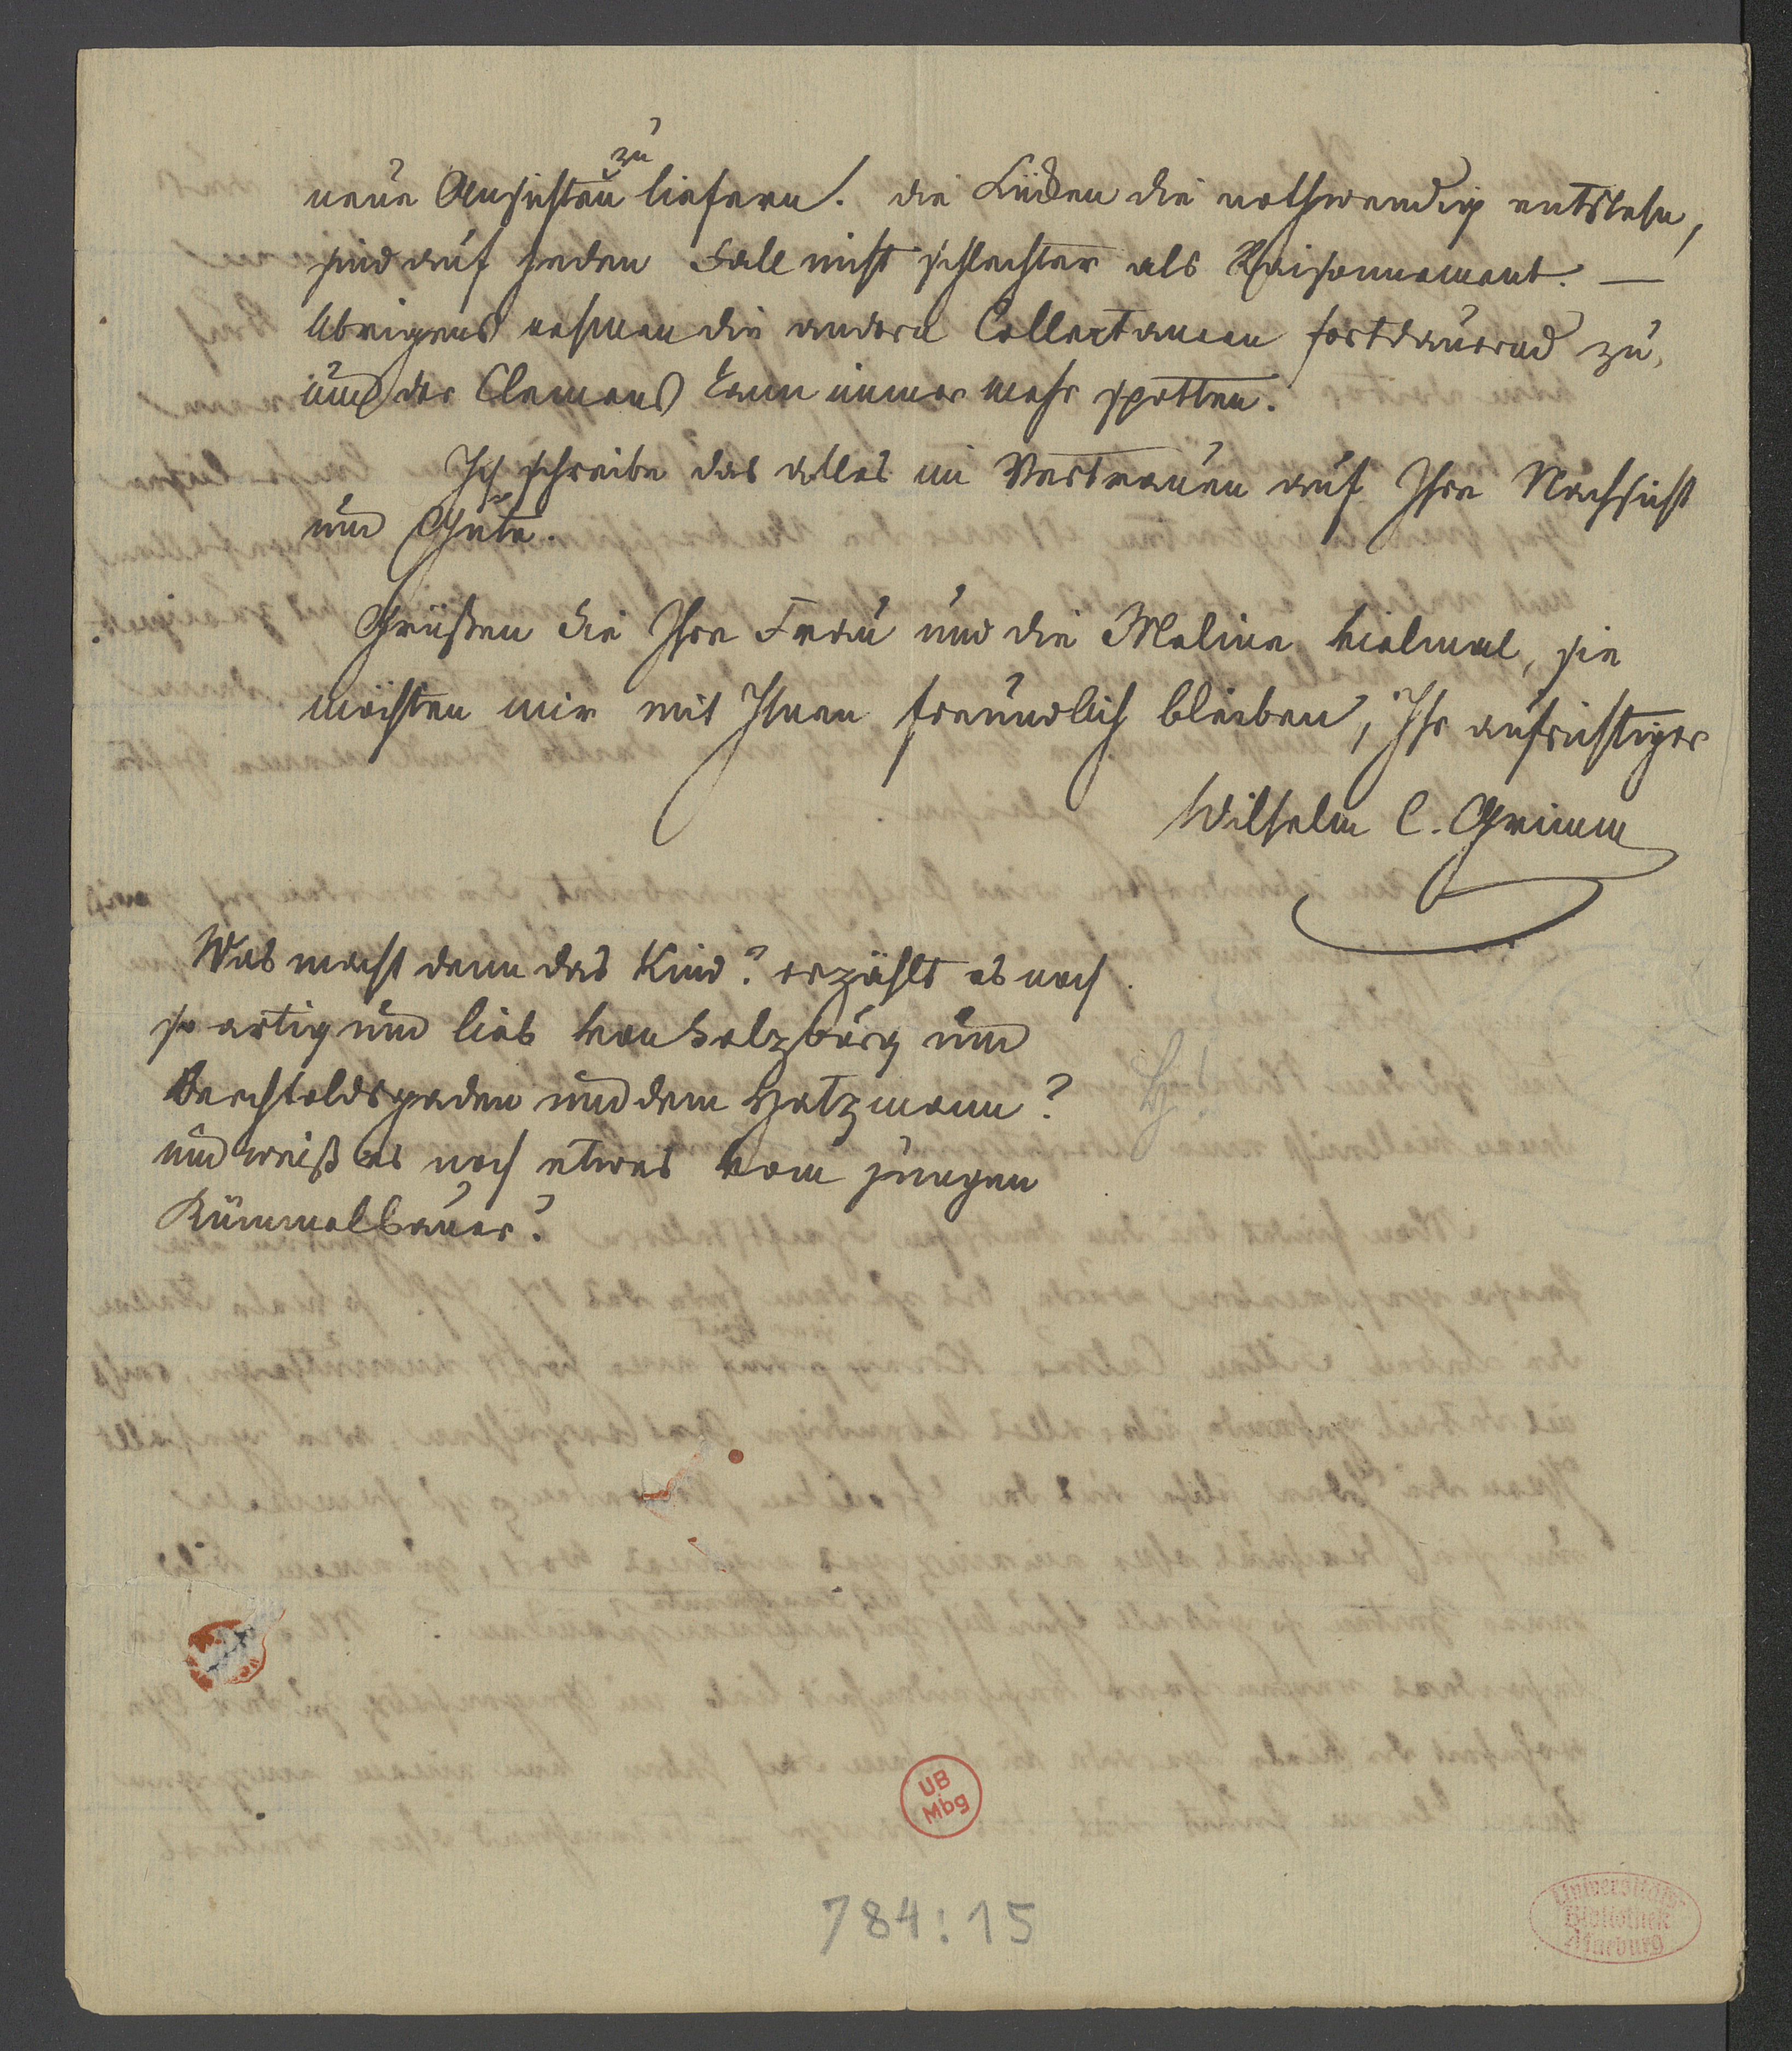 neue Ansichten zu liefern. die Lücken die nothwendig entstehn,
sind auf jeden Fall nicht schlechter als Raisonnement. —
Übrigens nehmen die andern Collectaneen fortdauernd zu,
und der Clemens kann immer mehr spotten.
Ich schreibe das alles im Vertrauen auf Ihre Nachsicht
und Güte.
Grüßen Sie Ihre Frau und die Meline vielmal, sie
möchten mir mit Ihnen freundlich bleiben, Ihr aufrichtiger
Wilhelm C. Grimm
Was macht denn das Kind? erzählt es noch
so artig und lieb von Salzburg und
Berchtoldsgaden und dem Hatzmann?
und weiß es noch etwas vom jungen
Kümmelbauer?
UB
Mbg
784:15
Universitäts
Bibliothek
Marburg